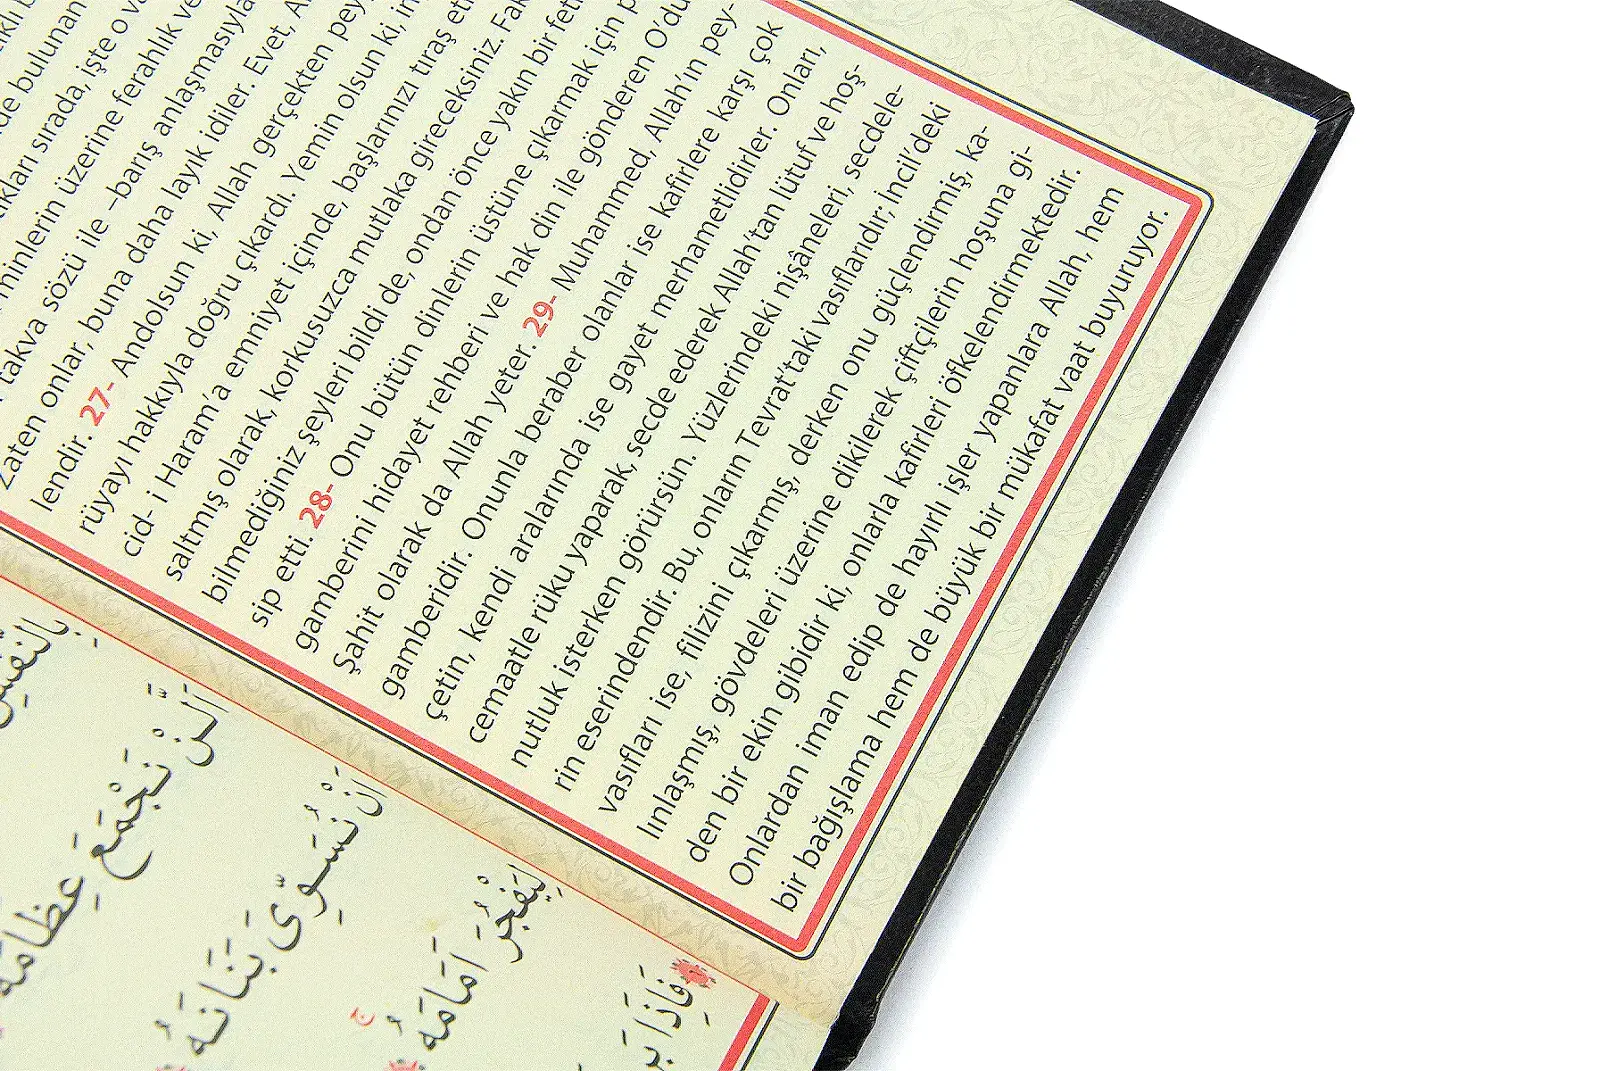 de bulunan
tıkları sırada, işte o va
minlerin üzerine ferahlık ve
takva sözü ile –barış anlaşmasıyla
zaten onlar, buna daha layık idiler. Evet, A
lendir. 27- Andolsun ki, Allah gerçekten pey
rüyayı hakkıyla doğru çıkardı. Yemin olsun ki, in
cid- i Haram’a emniyet içinde, başlarınızı tıraş et
saltmış olarak, korkusuzca mutlaka gireceksiniz. Fak
bilmediğiniz şeyleri bildi de, ondan önce yakın bir fet
sip etti. 28- Onu bütün dinlerin üstüne çıkarmak için p
gamberini hidayet rehberi ve hak din ile gönderen O’du
Şahit olarak da Allah yeter. 29- Muhammed, Allah’ın pey-
gamberidir. Onunla beraber olanlar ise kafirlere karşı çok
çetin, kendi aralarında ise gayet merhametlidirler. Onları,
cemaatle rüku yaparak, secde ederek Allah’tan lütuf ve hoş-
nutluk isterken görürsün. Yüzlerindeki nişâneleri, secdele-
rin eserindendir. Bu, onların Tevrat’taki vasıflarıdır; İncil’deki
vasıfları ise, filizini çıkarmış, derken onu güçlendirmiş, ka-
lınlaşmış, gövdeleri üzerine dikilerek çiftçilerin hoşuna gi-
den bir ekin gibidir ki, onlarla kafirleri öfkelendirmektedir.
Onlardan iman edip de hayırlı işler yapanlara Allah, hem
bir bağışlama hem de büyük bir mükafat vaat buyuruyor.
بِالنَّفْسِ
اَلَّنْ نَجْمَعَ عِظَامَهُ
اَنْ نُسَوِّىَ بَنَانَهُ
لِيَفْجُرَ اَمَامَهُ
فَاِذَا بَرِ